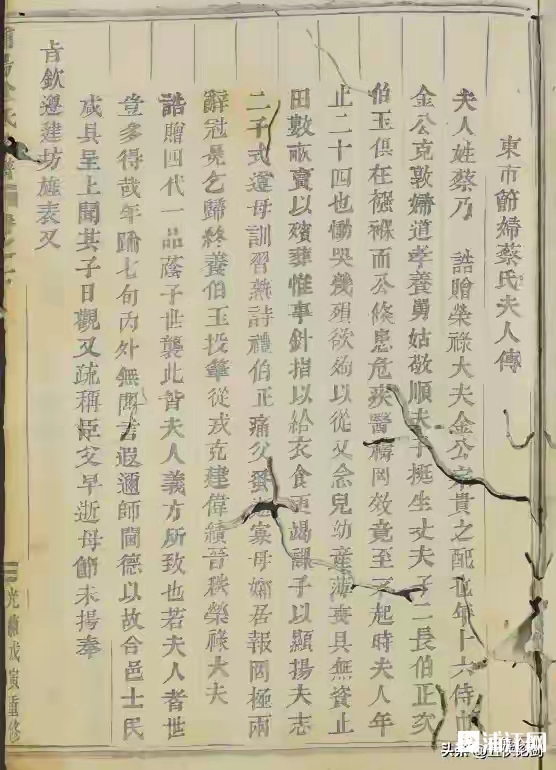 東市節婦蔡氏夫人傳
夫人姓蔡乃 誥贈榮祿大夫金公宗貴之配也年十六侍
金公克敦婦道孝養舅姑敬順夫子挺生丈夫子二長伯正次
伯玉俱在襁褓而公倏患危疾醫禱罔效竟至不起時夫人年
止二十四也慟哭幾殞欲殉以從又念兒幼產薄喪具無資止
田數畝賣以殯葬惟事針指以給衣食更竭課子以顯揚夫志
二子式遵母訓習熟詩禮伯正痛父 寡母孀居報罔極兩
辭冠冕乞歸終養伯玉投筆從戎克建偉績晉秩榮祿大夫
誥贈四代一品蔭子世襲此皆夫人義方所致也若夫人者世
豈多得哉年踰七旬內外無閒言遐邇師閫德以故合邑士民
咸具呈上聞其子日觀又疏稱臣父早逝母節未揚奉
旨欽遵建坊旌表又
光緒戊寅重修
浦江网